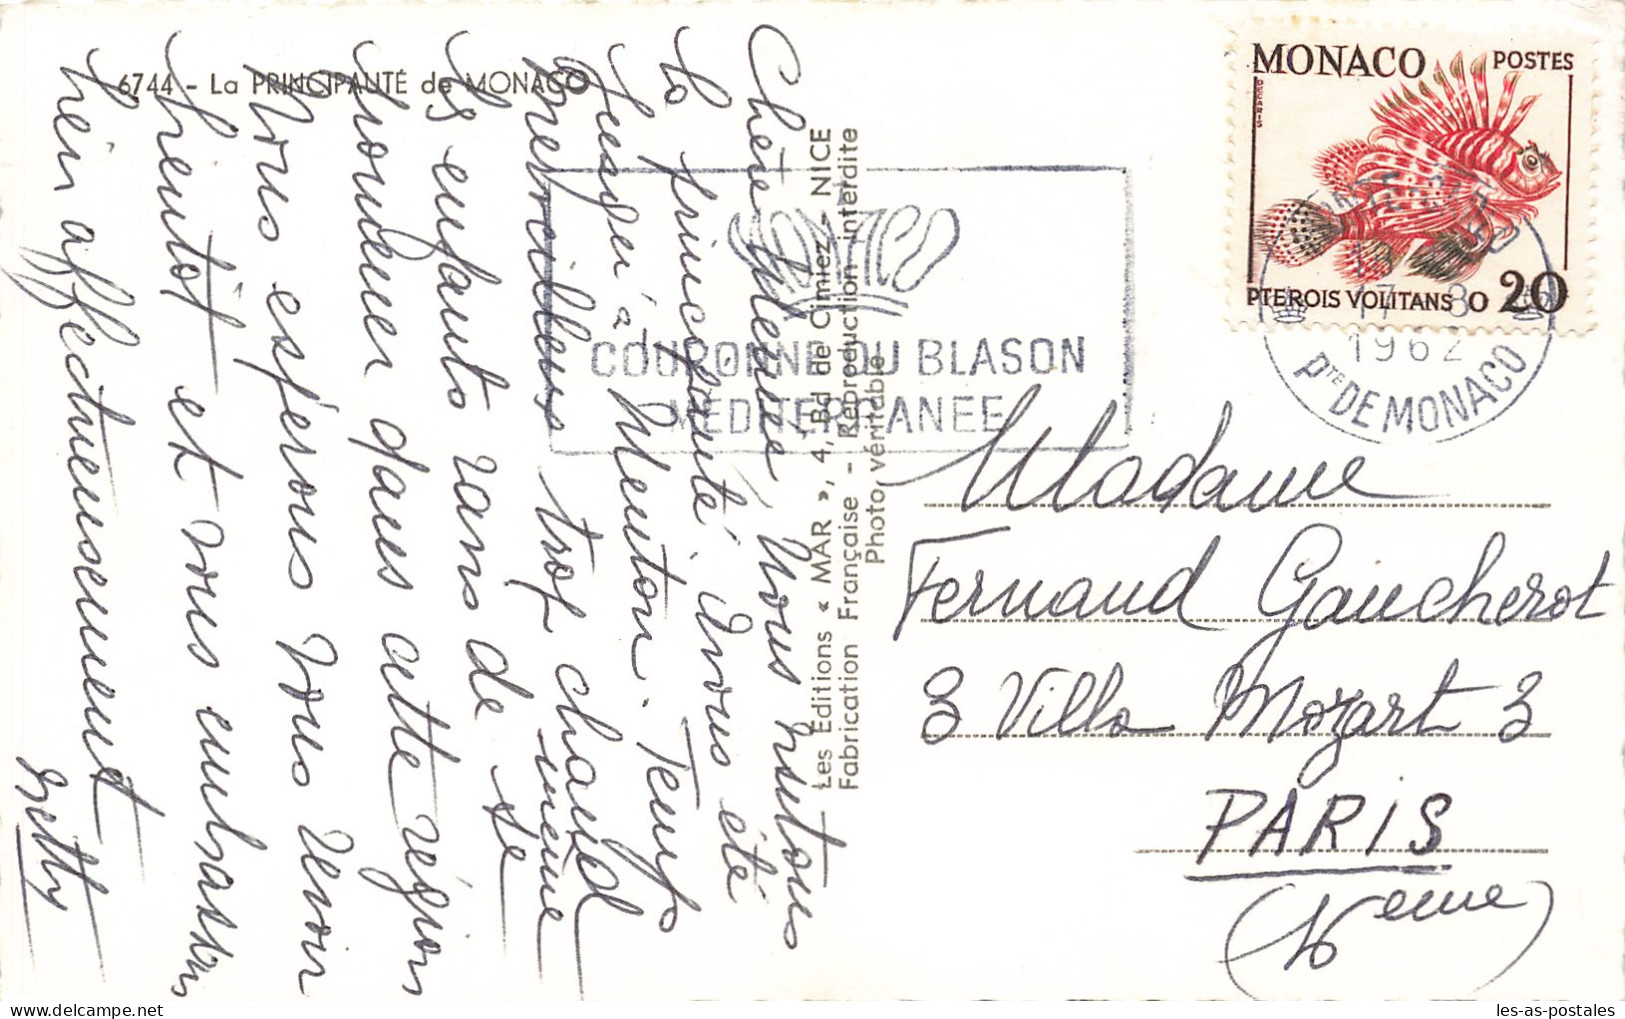 6744 - La PRINCIPAUTÉ de MONACO
Chère Madame, Nous visitons
la principauté. Avons été
jusqu'à Menton. Temps
merveilleux trop chaud même
les enfants rans de se
dans cette région
Nous espérons vous revoir
bientôt et vous embrassons
bien affectueusement
Betty
Les Editions « MAR », 4, Bd de Cimiez - NICE
Fabrication Française - Reproduction interdite
Photo véritable
COURONNE DU BLASON
MEDITERRANEE
MONACO POSTES
DECARIS
PTEROIS VOLITANS 0 20
17 - 8
1962
PTE DE MONACO
Madame
Fernand Gaucherot
3 Villa Mozart 3
PARIS
(16eme)
les-as-postales